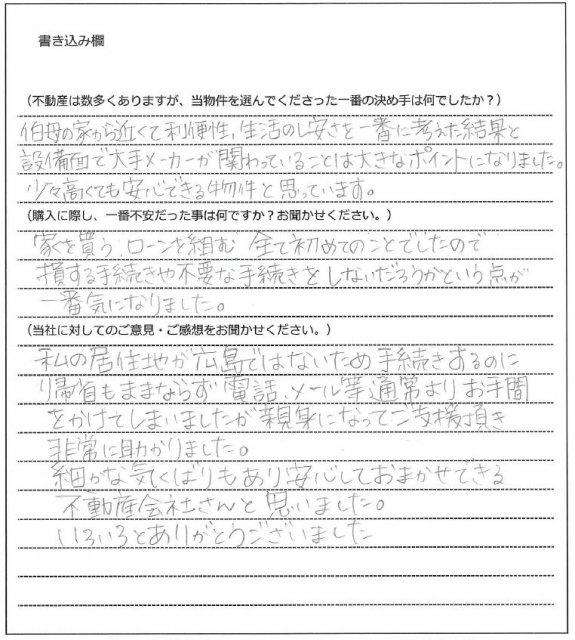 書き込み欄
（不動産は数多くありますが、当物件を選んでくださった一番の決め手は何でしたか？）
伯母の家から近くて利便性、生活のし安さを一番に考えた結果と
設備面で大手メーカーが関わっていることは大きなポイントになりました。
少々高くても安心できる物件と思っています。
（購入に際し、一番不安だった事は何ですか？お聞かせください。）
家を買う、ローンを組む 全て初めてのことでしたので
損する手続きや不要な手続きをしないだろうかという点が
一番気になりました。
（当社に対してのご意見・ご感想をお聞かせください。）
私の居住地が広島ではないため手続きするのに
帰省もままならず電話、メール等通常よりお手間
をかけてしまいましたが親身になってご支援頂き
非常に助かりました。
細かな気くばりもあり安心しておまかせできる
不動産会社さんと思いました。
いろいろとありがとうございました